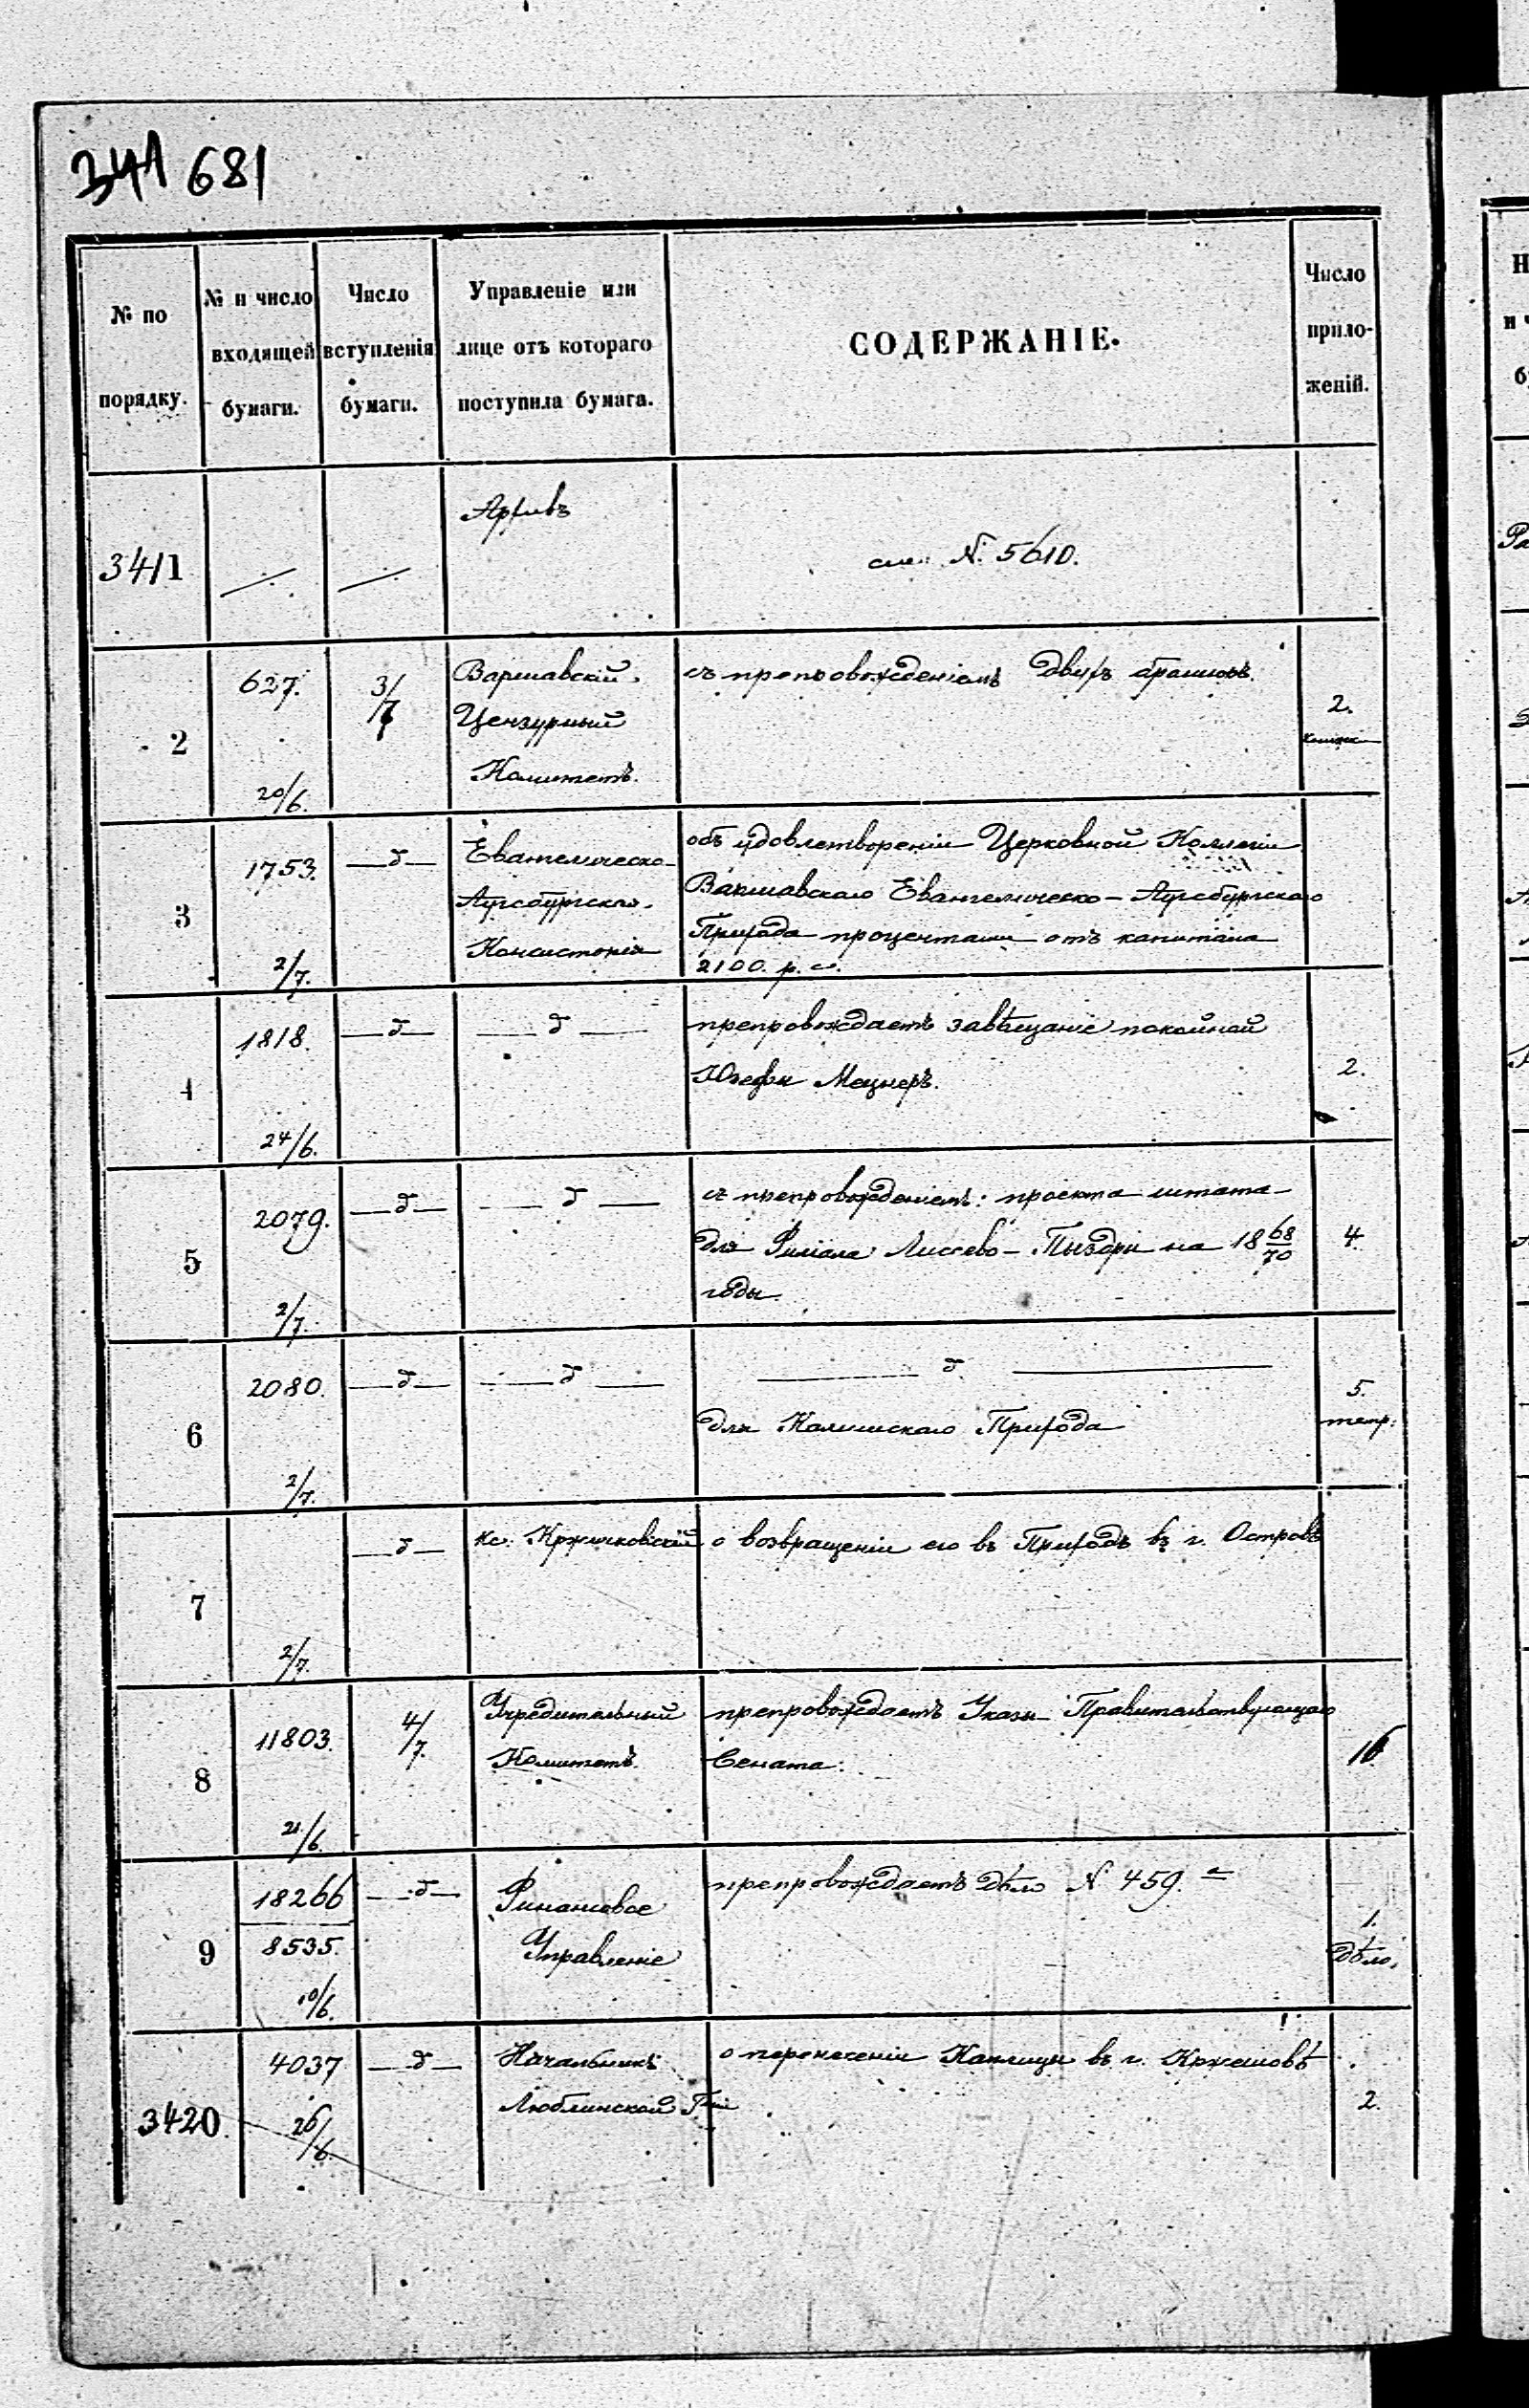 341 681
№ по порядку.
№ и число входящей бумаги.
Число вступленія бумаги.
Управленіе или лице отъ котораго поступила бумага.
СОДЕРЖАНІЕ.
Число приложеній.
3411
Архивъ
см. №. 5610.
2
627.
20/6.
3/7
Варшавскій
Цензурный
Комитетъ.
съ препровожденіемъ двухъ
2.
3
1753.
2/7.
—д—
Евангелическо-
Аугсбургская
Консисторія
объ удовлетвореніи Церковной Коллегіи
Варшавскаго Евангелическо-Аугсбургскаго
Прихода процентами отъ капитала
2100. р. с.
4
1818.
24/6.
—д—
—д—
препровождаетъ завѣщаніе покойной
Юзефы Мецнеръ.
2.
5
2079.
2/7.
—д—
—д—
съ препровожденіемъ: проекта штата
для Филіала Лиссево-Пыздры на 18 68/70
годы.
4.
6
2080.
2/7.
—д—
—д—
—д—
для Калишскаго Прихода
5.
тетр.
7
2/7.
—д—
кс. Кржичковскій
о возвращеніи его въ Приходъ въ г. Островъ
8
11803.
21/6.
4/7.
Учредительный
Комитетъ.
препровождаетъ Указы Правительствующаго
Сената.
16
9
18266
8535.
10/6.
—д—
Финансовое
Управленіе
препровождаетъ дѣло № 459.
1.
дѣло.
3420.
4037
26/6.
—д—
Начальникъ
Люблинской Г-ніи
о перенесеніи Каплицы въ г. Кржешовѣ
2.